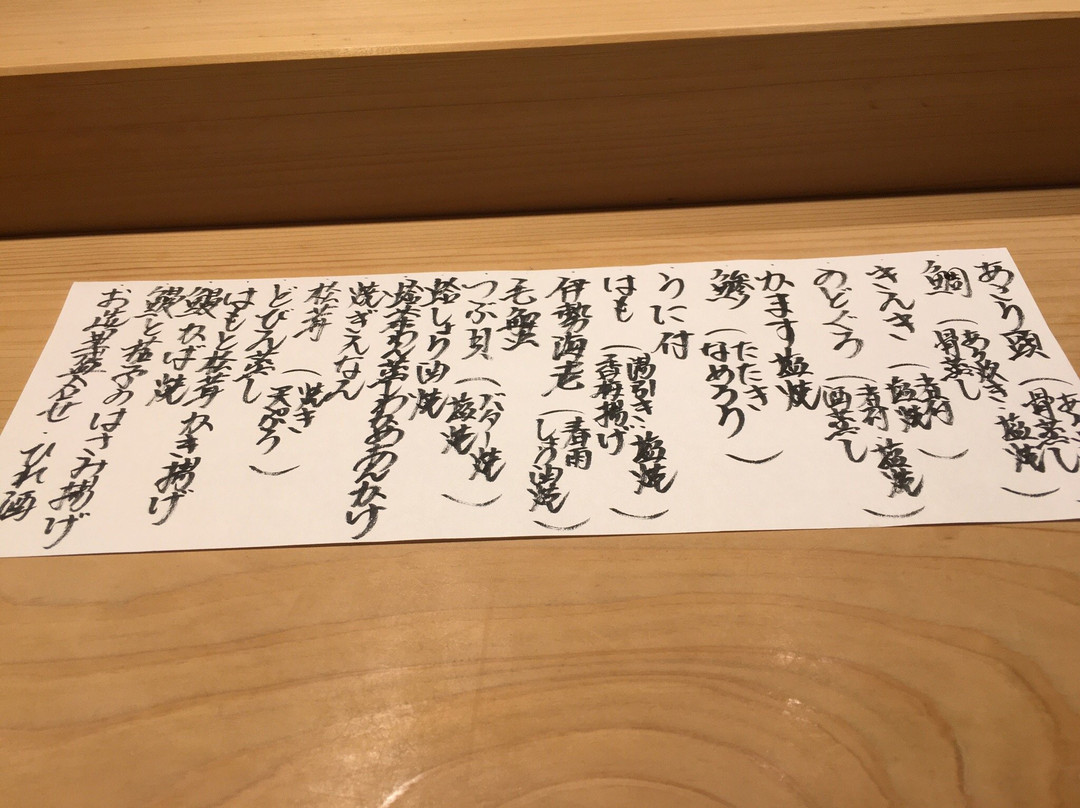 頭（骨蒸し 塩焼）
鯛（あら炊き 骨蒸し）
きんき（煮付 塩焼）
のどぐろ（煮付 塩焼 酒蒸し）
かます塩焼
鯵（たたき なめろう）
うに付
はも（湯引き 塩焼 揚げ）
伊勢海老（春雨 しょう油焼）
毛蟹
つぶ貝（バター焼 塩焼）
蛤しょう油焼
松茸茶わん蒸しあんかけ
焼ぎんなん
松茸（焼き 天ぷら）
どびん蒸し
はもと松茸かき揚げ
焼
はさみ揚げ
ひれ酒